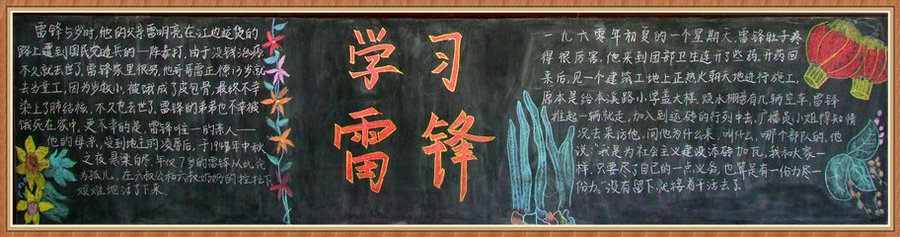 雷锋5岁时,他的父亲雷明亮在江边运货的
路上遭到国民党逃兵的一阵毒打,由于没钱治病
不久就去世了。雷锋家里很穷,他哥哥雷正德13岁就
去当童工,因为岁数小,被饿成了皮包骨,最终不幸
染上了肺结核,不久也去世了。雷锋的弟弟也不幸被
饿死在家中。更不幸的是,雷锋唯一的亲人——
他的母亲,受到地主的凌辱后,于1948年中秋
之夜悬梁自尽。年仅7岁的雷锋从此沦
为孤儿,在六叔公和六叔奶奶的拉扯下
艰难地活了下来。
学习
雷锋
一九六零年初夏的一个星期天,雷锋肚子疼
得很厉害,他来到团部卫生连开了些药,开药回
来后,见一个建筑工地上正热火朝天地进行施工,
原本是给本溪路小学盖大楼,烧水棚旁有几辆空车,雷锋
推起一辆就走,加入到运砖的行列中去,广播员小姐得知情
况去采访他,问他为什么来,叫什么,哪个部队的,他
说:“我是为社会主义建设添砖加瓦,我和大家一
样,只要尽了自己的一点义务,也算是有一份力尽一
份力。”没有留下就接着干活去了。